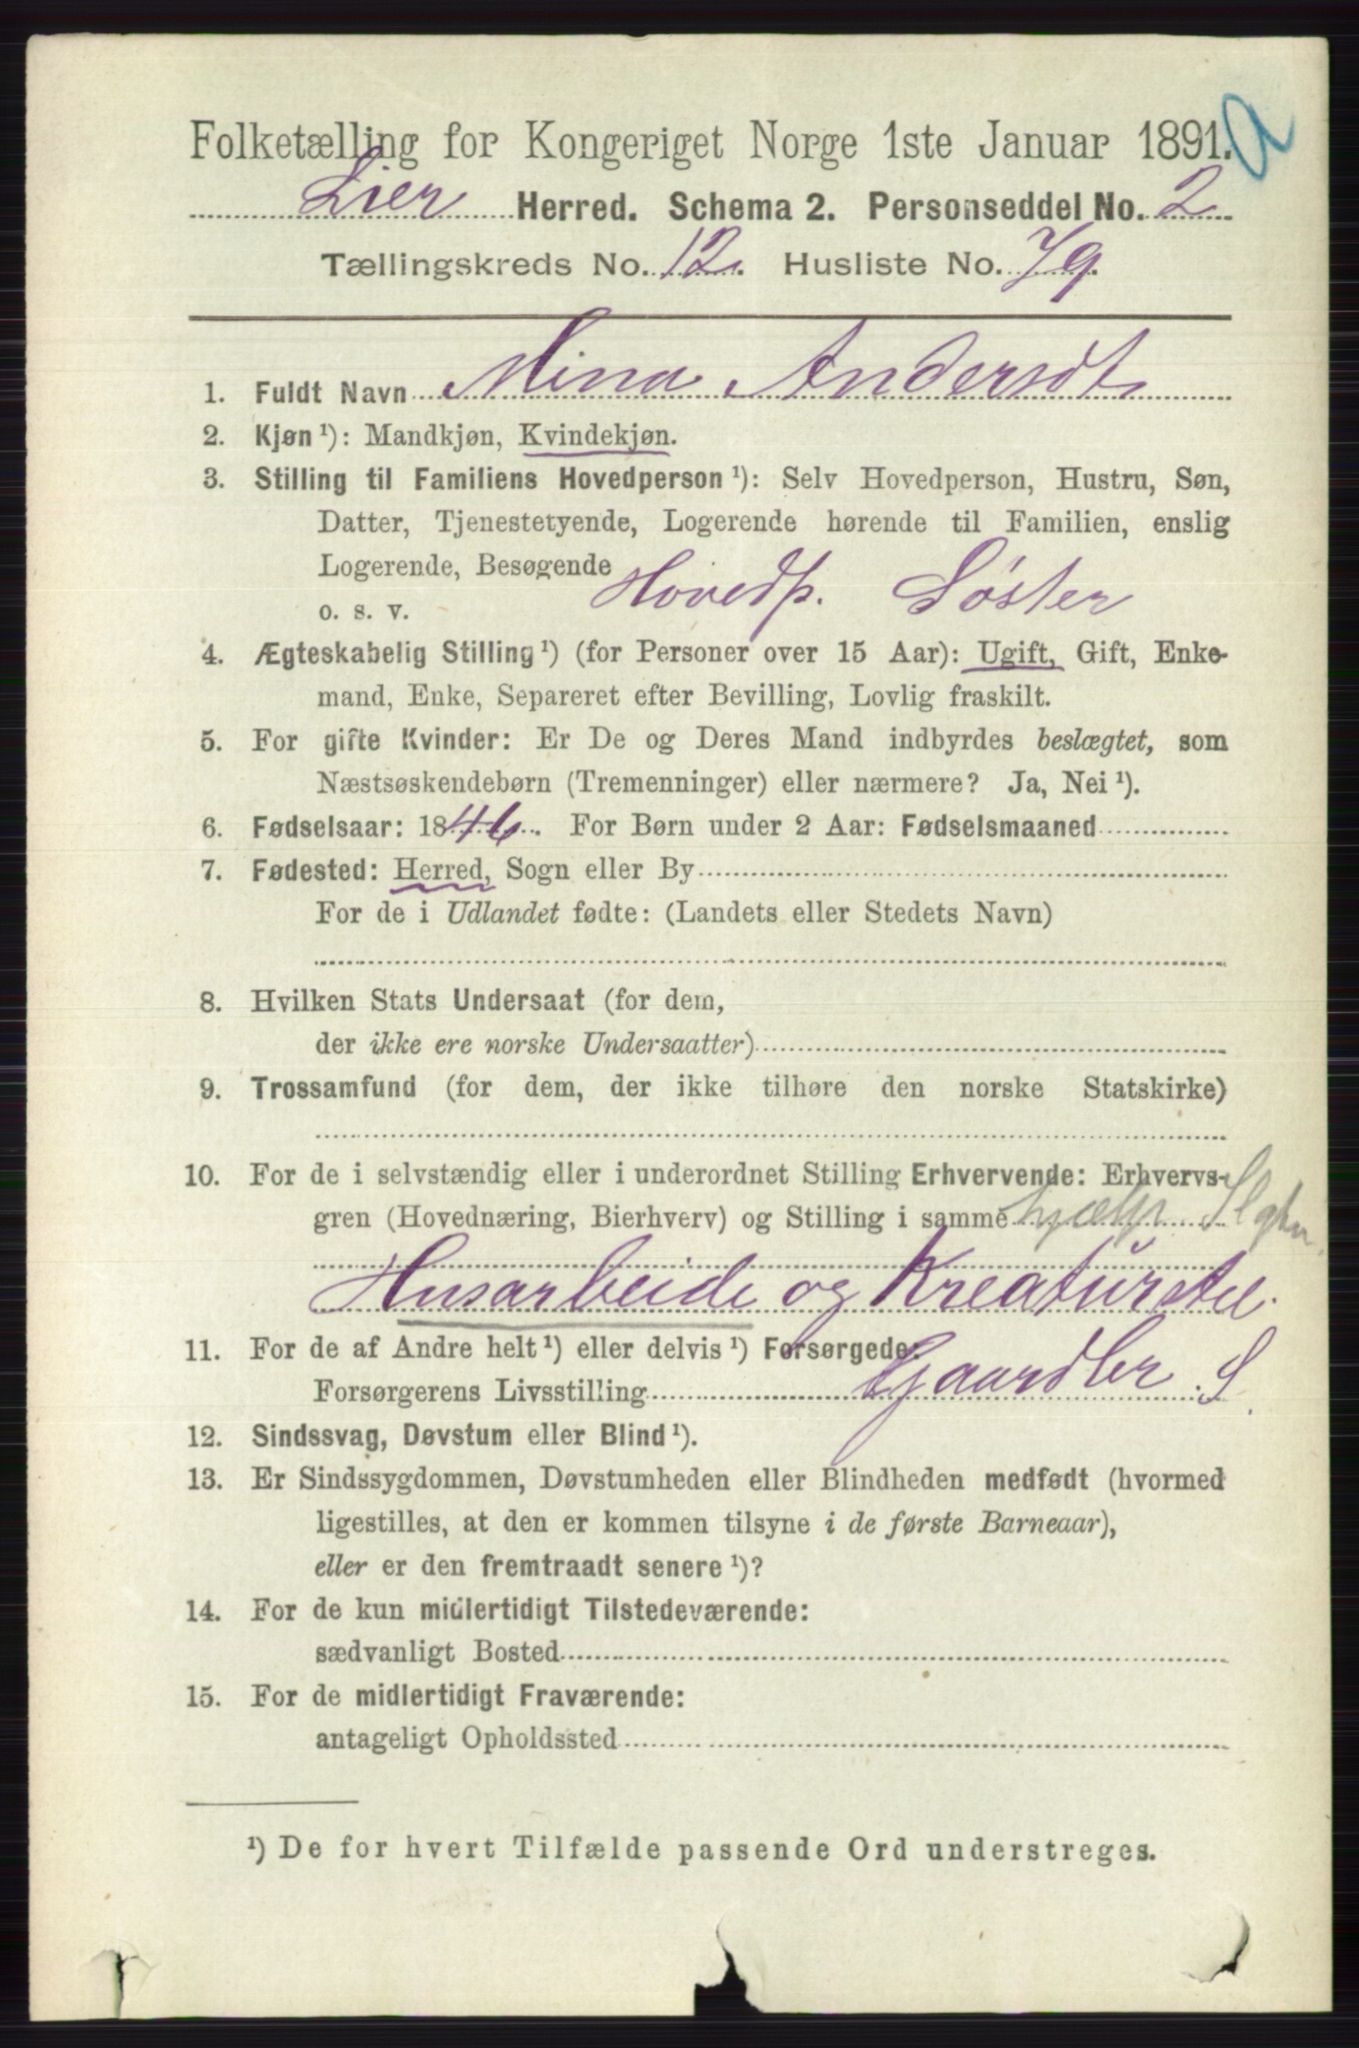 Folketælling for Kongeriget Norge 1ste Januar 1891. a
Lier Herred. Schema 2. Personseddel No. 2
Tællingskreds No. 12. Husliste No. 79.
1. Fuldt Navn Mina Andersdt.
2. Kjøn ¹): Mandkjøn, Kvindekjøn.
3. Stilling til Familiens Hovedperson ¹): Selv Hovedperson, Hustru, Søn,
Datter, Tjenestetyende, Logerende hørende til Familien, enslig
Logerende, Besøgende
o. s. v. Hovedp. Søster
4. Ægteskabelig Stilling ¹) (for Personer over 15 Aar): Ugift, Gift, Enke-
mand, Enke, Separeret efter Bevilling, Lovlig fraskilt.
5. For gifte Kvinder: Er De og Deres Mand indbyrdes beslægtet, som
Næstsøskendebørn (Tremenninger) eller nærmere? Ja, Nei ¹).
6. Fødselsaar: 1846. For Børn under 2 Aar: Fødselsmaaned
7. Fødested: Herred, Sogn eller By
For de i Udlandet fødte: (Landets eller Stedets Navn)
8. Hvilken Stats Undersaat (for dem,
der ikke ere norske Undersaatter)
9. Trossamfund (for dem, der ikke tilhøre den norske Statskirke)
10. For de i selvstændig eller i underordnet Stilling Erhvervende: Erhvervs-
gren (Hovednæring, Bierhverv) og Stilling i samme hjælp
Husarbeide og Kreaturstel.
11. For de af Andre helt ¹) eller delvis ¹) Forsørgede:
Forsørgerens Livsstilling Gaardbr. S.
12. Sindssvag, Døvstum eller Blind ¹).
13. Er Sindssygdommen, Døvstumheden eller Blindheden medfødt (hvormed
ligestilles, at den er kommen tilsyne i de første Barneaar),
eller er den fremtraadt senere ¹)?
14. For de kun midlertidigt Tilstedeværende:
sædvanligt Bosted
15. For de midlertidigt Fraværende:
antageligt Opholdssted
¹) De for hvert Tilfælde passende Ord understreges.